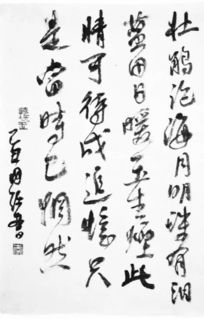 杜鵑滄海月明珠有泪
藍田日暖玉生煙此
情可待成追憶只
是當時已惘然
錦瑟